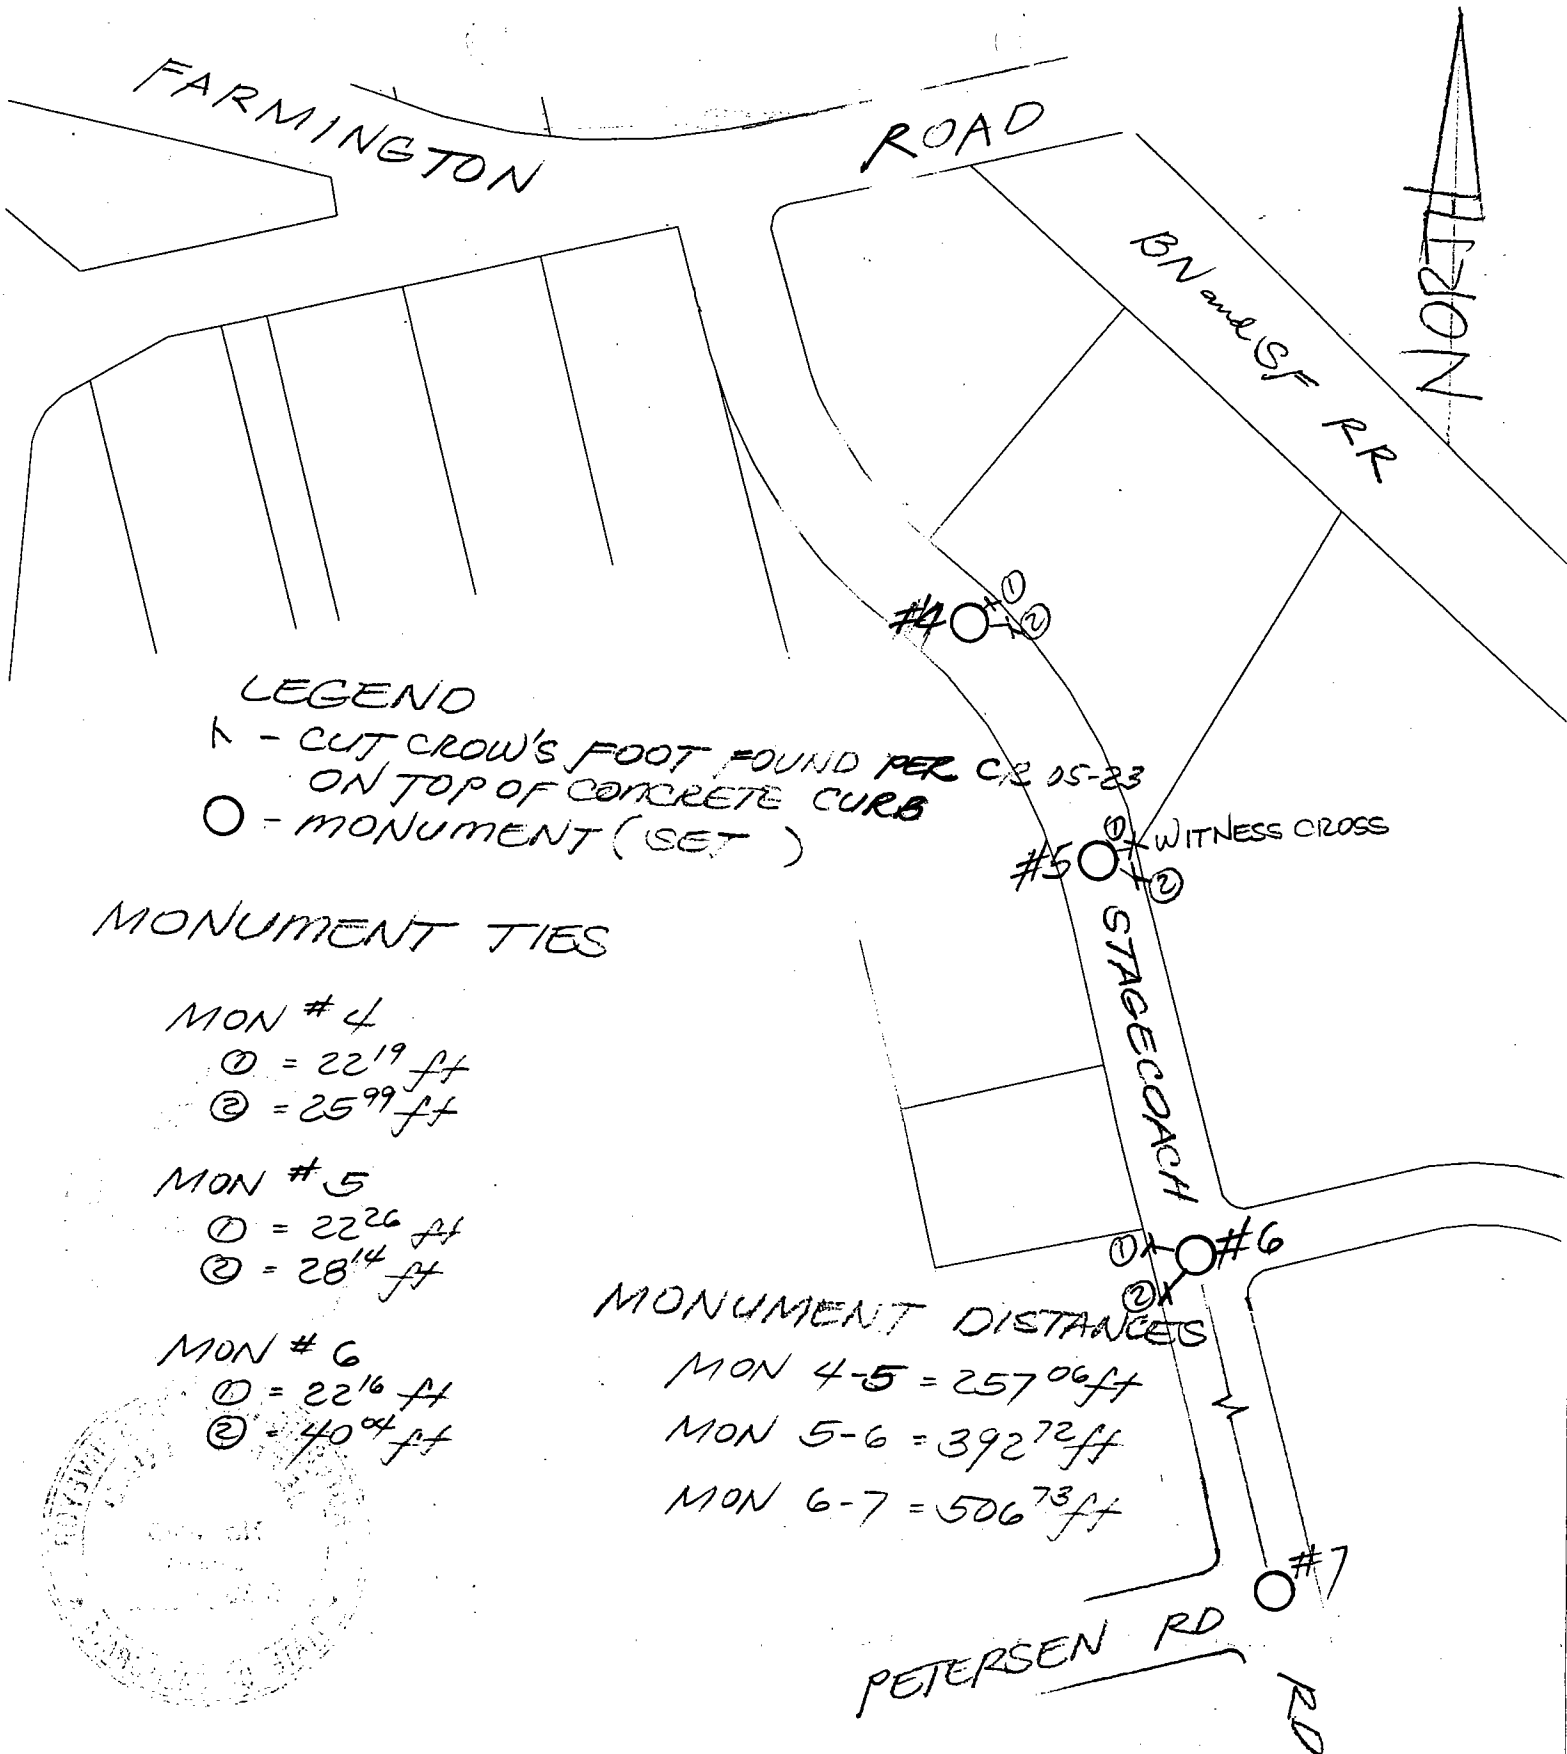 FARMINGTON ROAD
NORTH
BN and SF RR
① ②
#4
LEGEND
- CUT CROW'S FOOT FOUND PER CR 05-23
ON TOP OF CONCRETE CURB
- MONUMENT (SET )
① WITNESS CROSS
#5
②
STAGECOACH
MONUMENT TIES
MON # 4
① = 22 19 ft
② = 25 99 ft
MON # 5
① = 22 26 ft
② = 28 14 ft
MON # 6
① = 22 16 ft
② = 40 04 ft
① #6
②
MONUMENT DISTANCES
MON 4-5 = 257 06 ft
MON 5-6 = 392 72 ft
MON 6-7 = 506 73 ft
#7
PETERSEN RD
RD